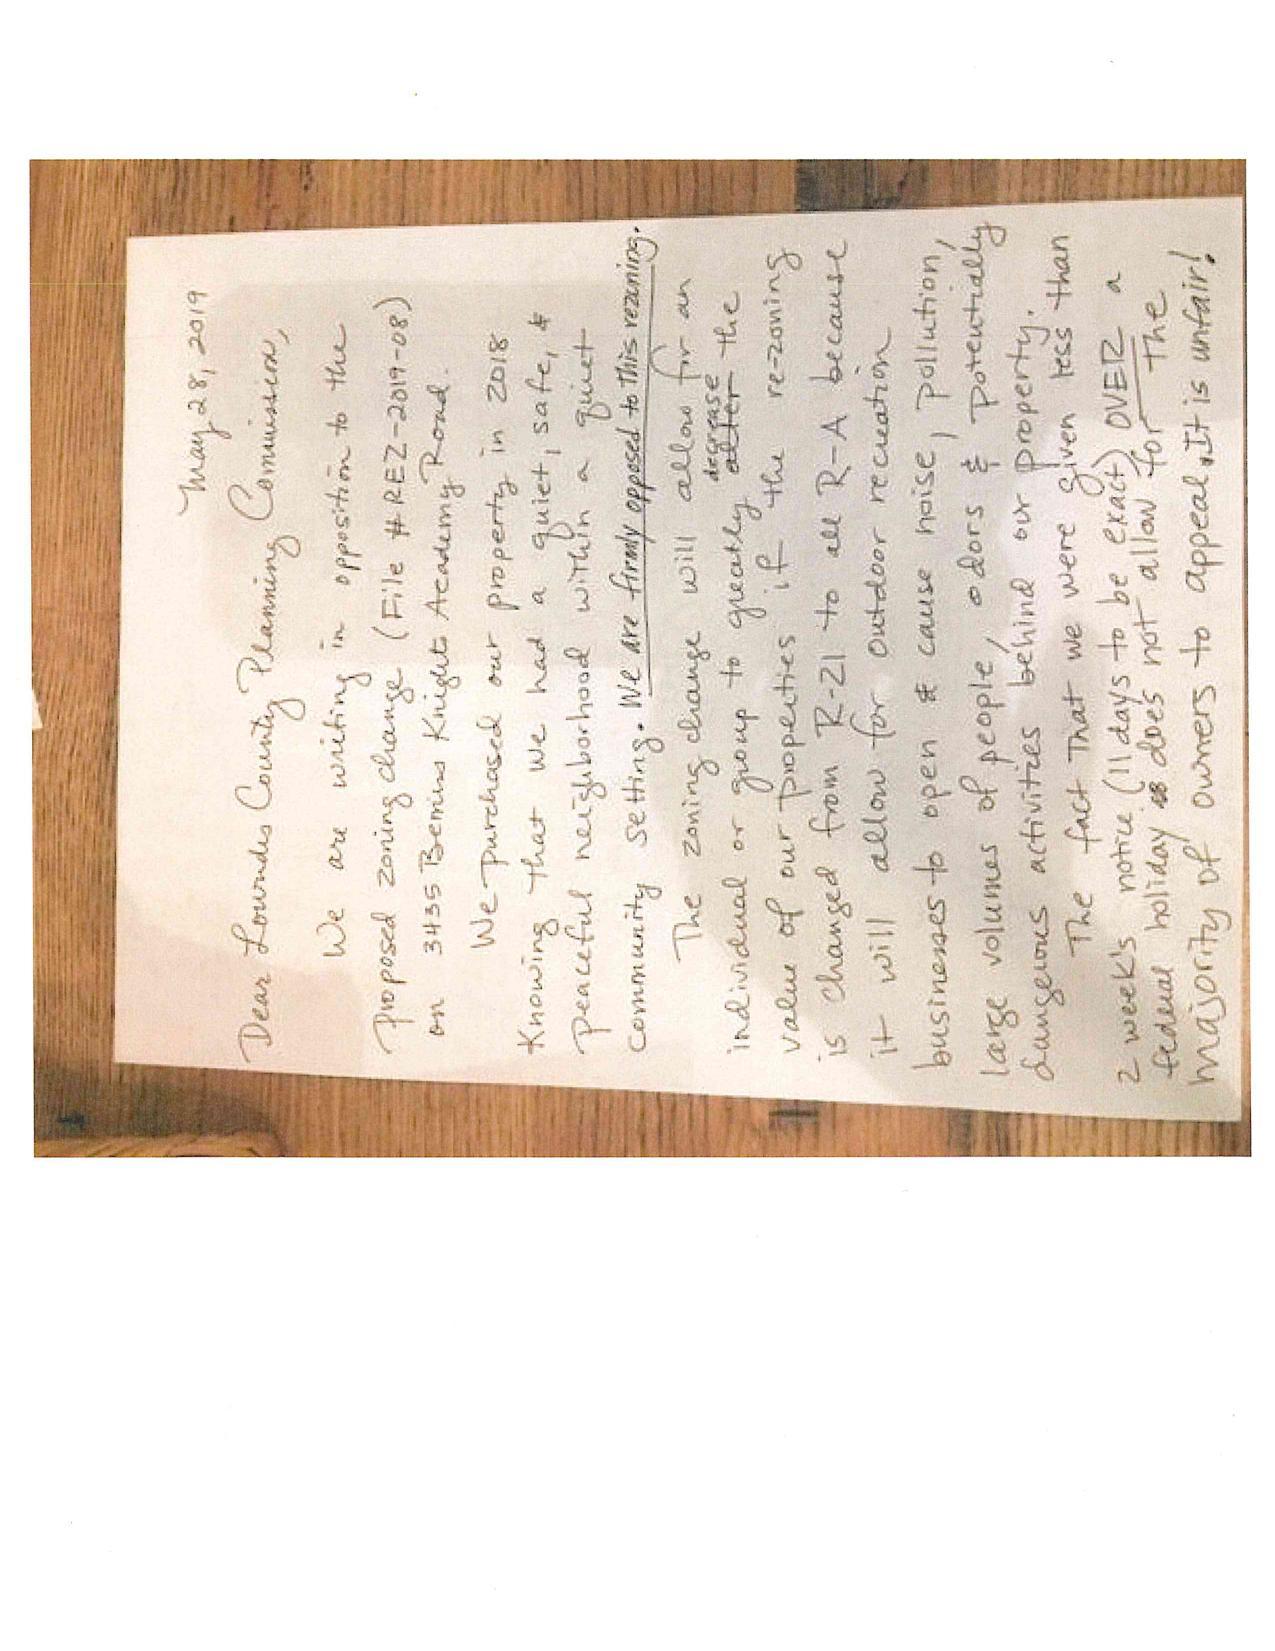 May 28, 2019
Dear Lowndes County Planning Commission,
We are writing in opposition to the
proposed zoning change (File # REZ-2019-08)
on 3435 Bemiss Knights Academy Road.
We purchased our property in 2018
Knowing that we had a quiet, safe, &
peaceful neighborhood within a quiet
community setting. We are firmly opposed to this rezoning.
The zoning change will allow for an
individual or group to greatly decrease alter the
value of our properties if the re-zoning
is changed from R-21 to all R-A because
it will allow for outdoor recreation
businesses to open & cause noise, pollution,
large volumes of people, odors & potentially
dangerous activities behind our property.
The fact that we were given less than
2 week's notice (11 days to be exact) OVER a
federal holiday does not allow for the
majority of owners to appeal. It is unfair!